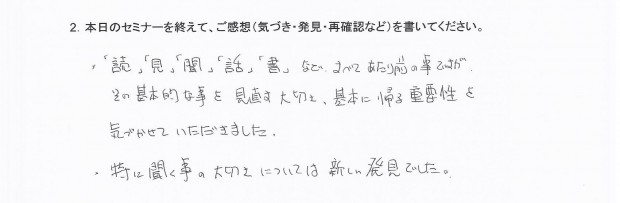 2. 本日のセミナーを終えて、ご感想(気づき・発見・再確認など)を書いてください。
・「読」「見」「聞」「話」「書」など、すべてあたり前の事ですが、
その基本的な事を見直す大切さ、基本に帰る重要性を
気づかせていただきました。
・特に聞く事の大切さについては新しい発見でした。